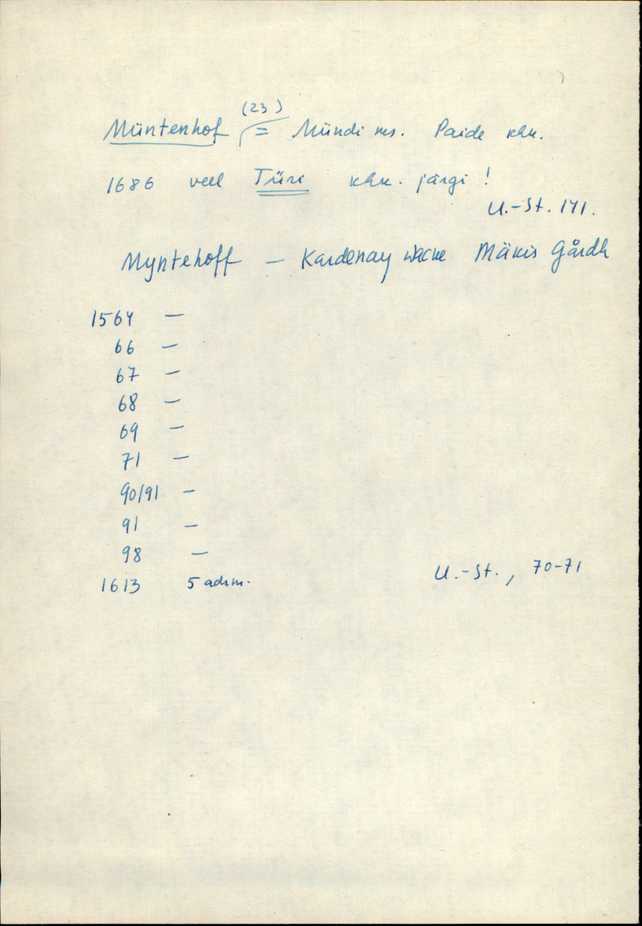 (23)
Müntenhof = Mündi ms. Paide khk.
1686 veel Türi khk. järgi!
U.-St. 141.
Myntehoff — Kardenay wacke Mäkis Gårdh
1564 —
66 —
67 —
68 —
69 —
71 —
90/91 —
91 —
98 —
1613 5 adrm.
U.-St., 70-71